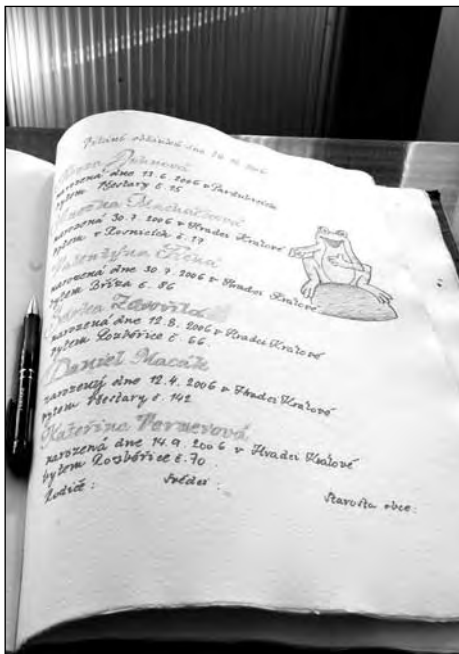 Vítání občánků dne
Jahnová
narozená dne 13. 6. 2006 v Pardubicích
bytem Všestary č. 25
Machačková
narozená dne 30. 7. 2006 v Hradci Králové
bytem v Rosnicích č. 17
narozená dne 30. 7. 2006 v Hradci Králové
bytem Bříza č. 86
narozená dne 12. 8. 2006 v Hradci Králové
bytem Rozběřice č. 66
Daniel Macák
narozený dne 12. 4. 2006 v Hradci Králové
bytem Všestary č. 142
Kateřina Pernerová
narozená dne 14. 9. 2006 v Hradci Králové
bytem Rozběřice č. 70
Rodiče: Svědci: Starosta obce: